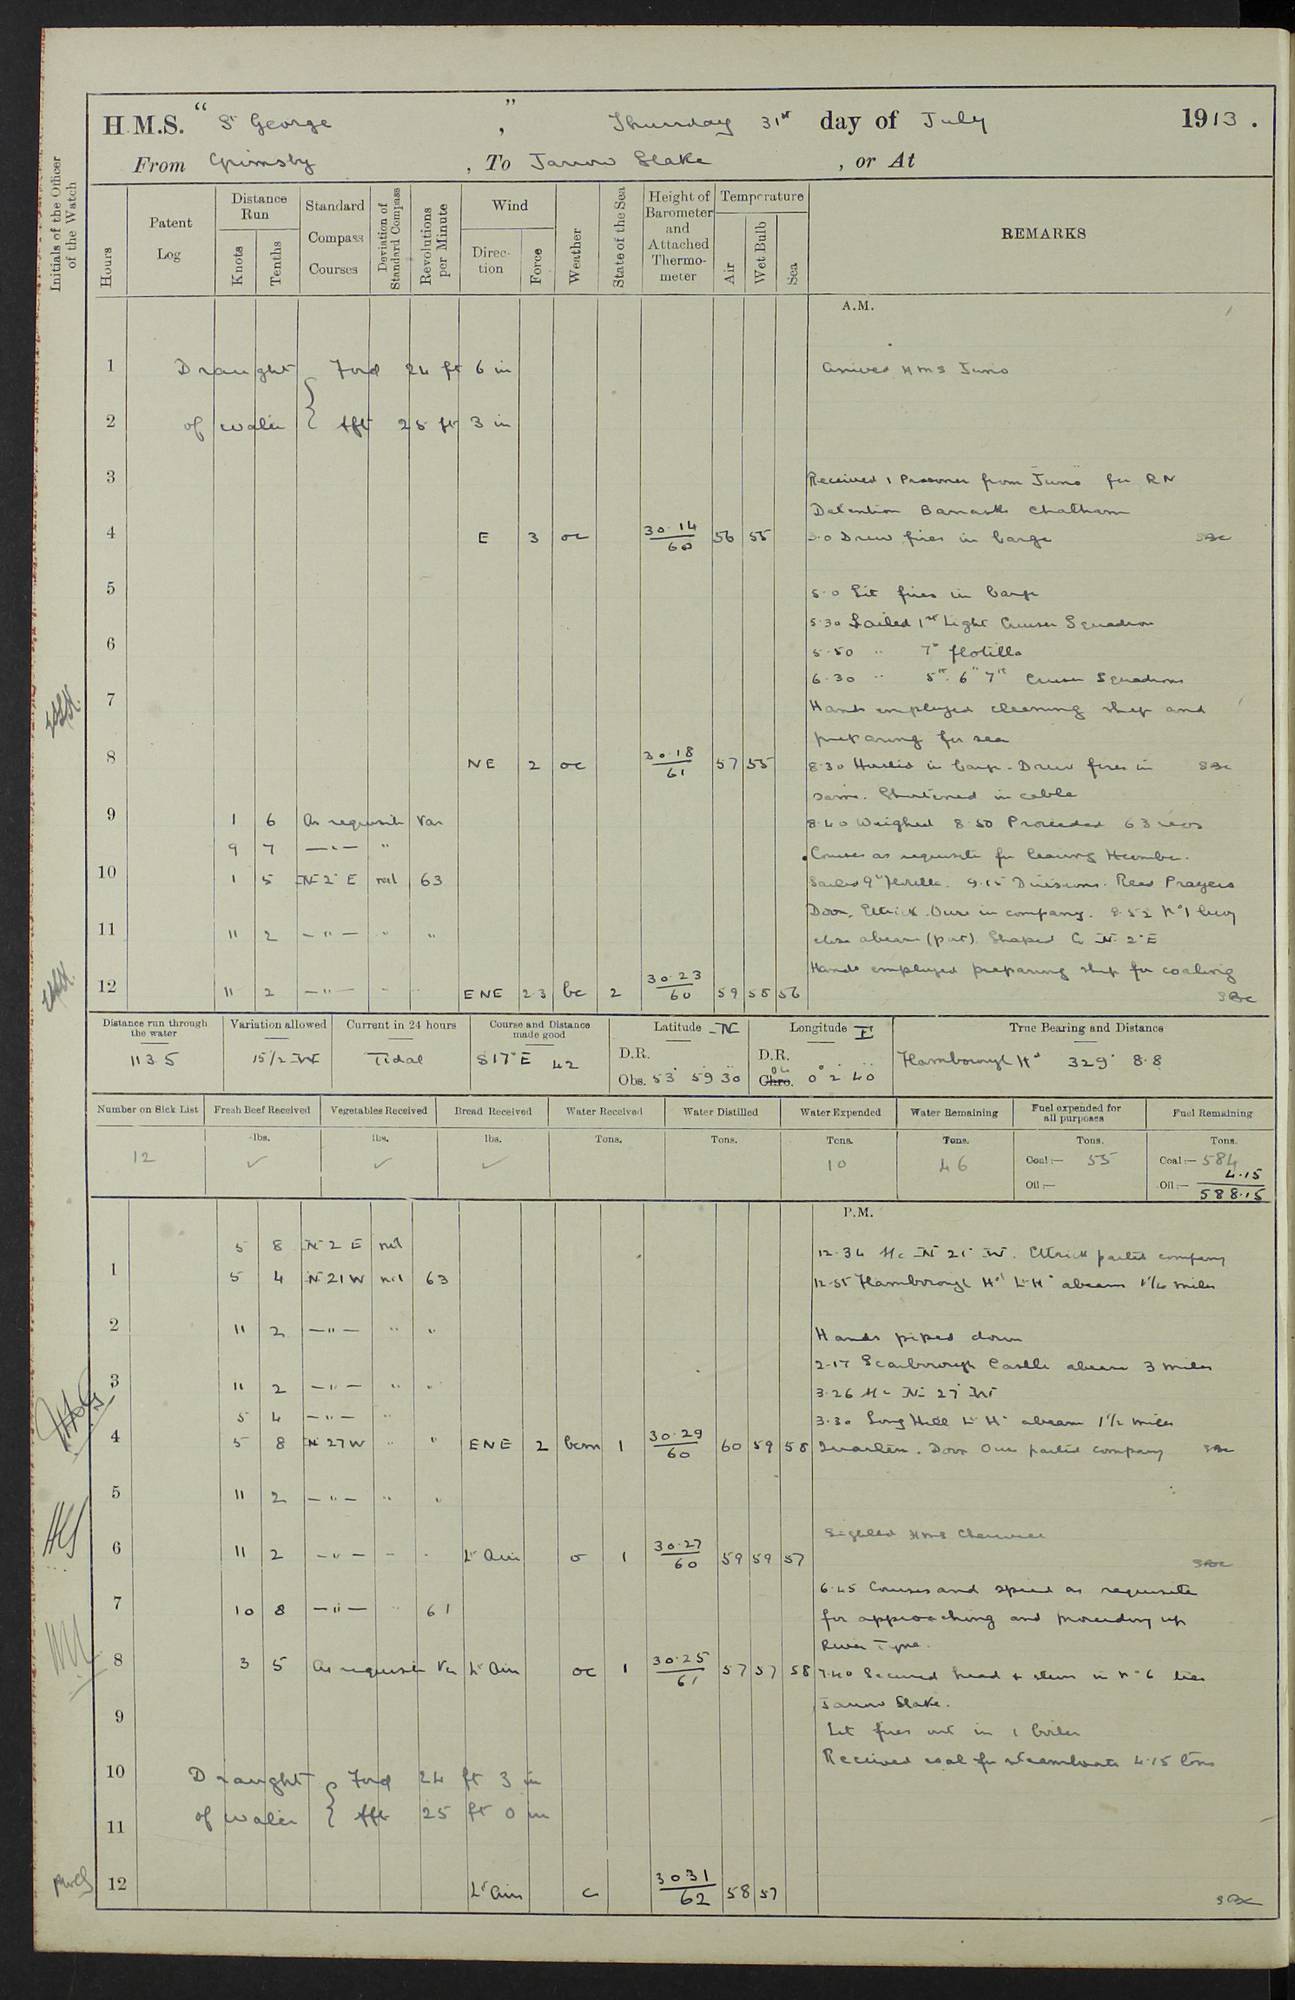 H.M.S. "St George", Thursday 31st day of July 1913.
From Grimsby, To Jarrow Slake, or At
Initials of the Officer of the Watch
Hours
Patent Log
Distance Run
Knots
Tenths
Standard Compass Courses
Deviation of Standard Compass
Revolutions per Minute
Wind
Direction
Force
Weather
State of the Sea
Height of Barometer and Attached Thermometer
Temperature
Air
Wet Bulb
Sea
REMARKS
A.M.
1 Draught Ford 24 ft 6 in Arrived HMS Juno
2 of water Aft 25 ft 3 in
3 Received 1 Prisoner from Juno for RN
Detention Barracks Chatham
4 E 3 oc 30.14 60 56 55 Drew fires in barge
5 5.0 Lit fires in barge
5.30 Sailed 1st Light Cruiser Squadron
6 5.50 " 7th flotilla
6.30 " 5th 6th 7th Cruiser Squadrons
7 Hands employed cleaning ship and
preparing for sea
8 NE 2 oc 30.18 61 57 55 8.30 Hoisted in barge - Drew fires in
same. Shortened in cable
9 1 6 As requisite Var 8.40 Weighed 8.50 Proceeded 63 revs
9 7 — " — " Courses as requisite for leaving Humber.
10 1 5 N 2° E nil 63 Sailed 9th flotilla. 9.15 Divisions. Read Prayers
Doon, Ettrick, Ouse in company. 9.52 No 1 buoy
11 11 2 — " — " " close abeam (port) Shaped Co N 2° E
Hands employed preparing ship for coaling
12 11 2 — " — - ENE 2.3 bc 2 30.23 60 59 58 56
Distance run through the water 113.5
Variation allowed 15 1/2 W
Current in 24 hours Tidal
Course and Distance made good S 17° E 42
Latitude N
D.R.
Obs. 53° 59 30
Longitude E
D.R.
Chro. 0° 2 40
True Bearing and Distance
Flamborough Hd 329° 8.8
Number on Sick List 12
Fresh Beef Received lbs. ✓
Vegetables Received lbs. ✓
Bread Received lbs. ✓
Water Received Tons.
Water Distilled Tons.
Water Expended Tons. 10
Water Remaining Tons. 46
Fuel expended for all purposes Tons.
Coal:— 55
Oil:—
Fuel Remaining Tons.
Coal:— 584
4.15
Oil:— 588.15
P.M.
5 8 N 2 E nil 12.34 A/c N 21° W. Ettrick parted company
1 5 4 N 21 W nil 63 12.55 Flamborough Hd Lt Ho abeam miles
2 11 2 — " — " " Hands piped down
2.17 Scarborough Castle abeam 3 miles
3 11 2 — " — " " 3.26 A/c N 27° W
5 4 — " — " 3.30 Long Hill Lt Ho abeam 1 1/2 miles
4 5 8 N 27 W " " ENE 2 bcm 1 30.29 60 60 59 58 Quarters. Doon Ouse parted company
5 11 2 — " — " "
Sighted HMS
6 11 2 — " — - - Lt Airs o 1 30.27 60 59 59 57
6.45 Courses and speed as requisite
7 10 8 — " — " 61 for approaching and proceeding up
River Tyne.
8 3 5 As requisite Var Lt Airs oc 1 30.25 61 57 57 58 7.40 Secured head & stern in No 6 tier
Jarrow Slake.
9 Let fires out in 1 boiler
10 Draught Ford 24 ft 3 in Received coal for steamboats 4.15 tons
11 of water Aft 25 ft 0 in
12 Lt Airs c 30.31 62 58 57